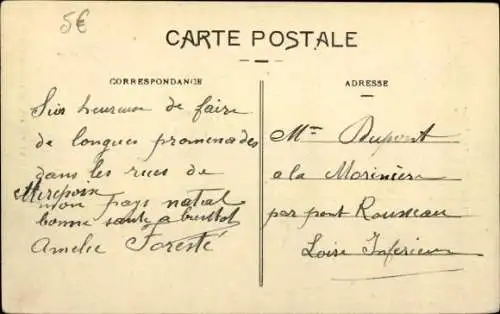 5€
CARTE POSTALE
CORRESPONDANCE
Suis heureuse de faire
de longues promenades
dans les rues de
Mirepoix
mon pays natal
bonne santé a bientot
Amelie Foresté
ADRESSE
Mme Dupont
a la Morinière
par pont Rousseau
Loire Inférieure